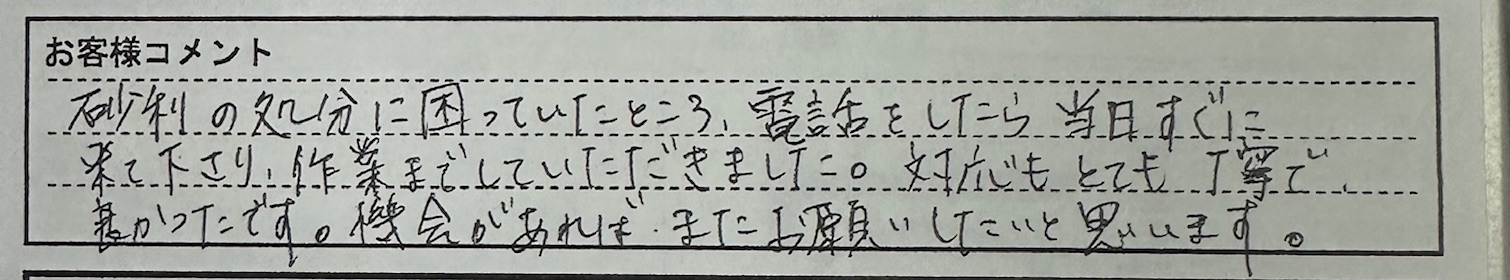 お客様コメント
砂利の処分に困っていたところ、電話をしたら当日すぐに
来て下さり、作業までしていただきました。対応もとても丁寧で、
良かったです。機会があれば、またお願いしたいと思います。